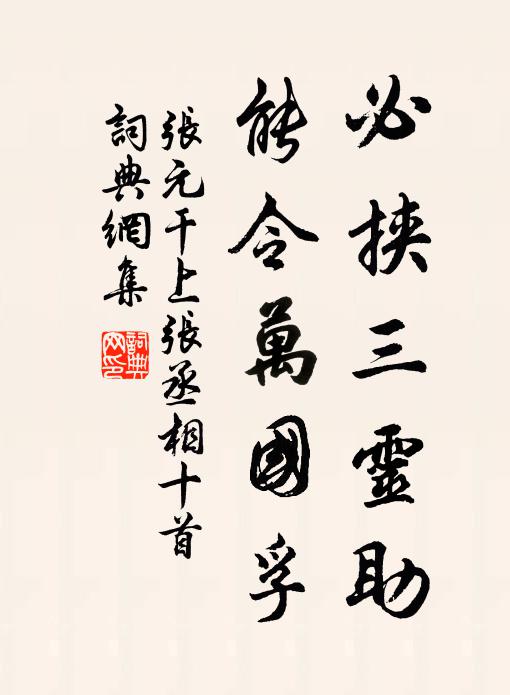 必挾三靈助
能令萬國孚
張元干上張丞相十首
詞典網集
詞典網印